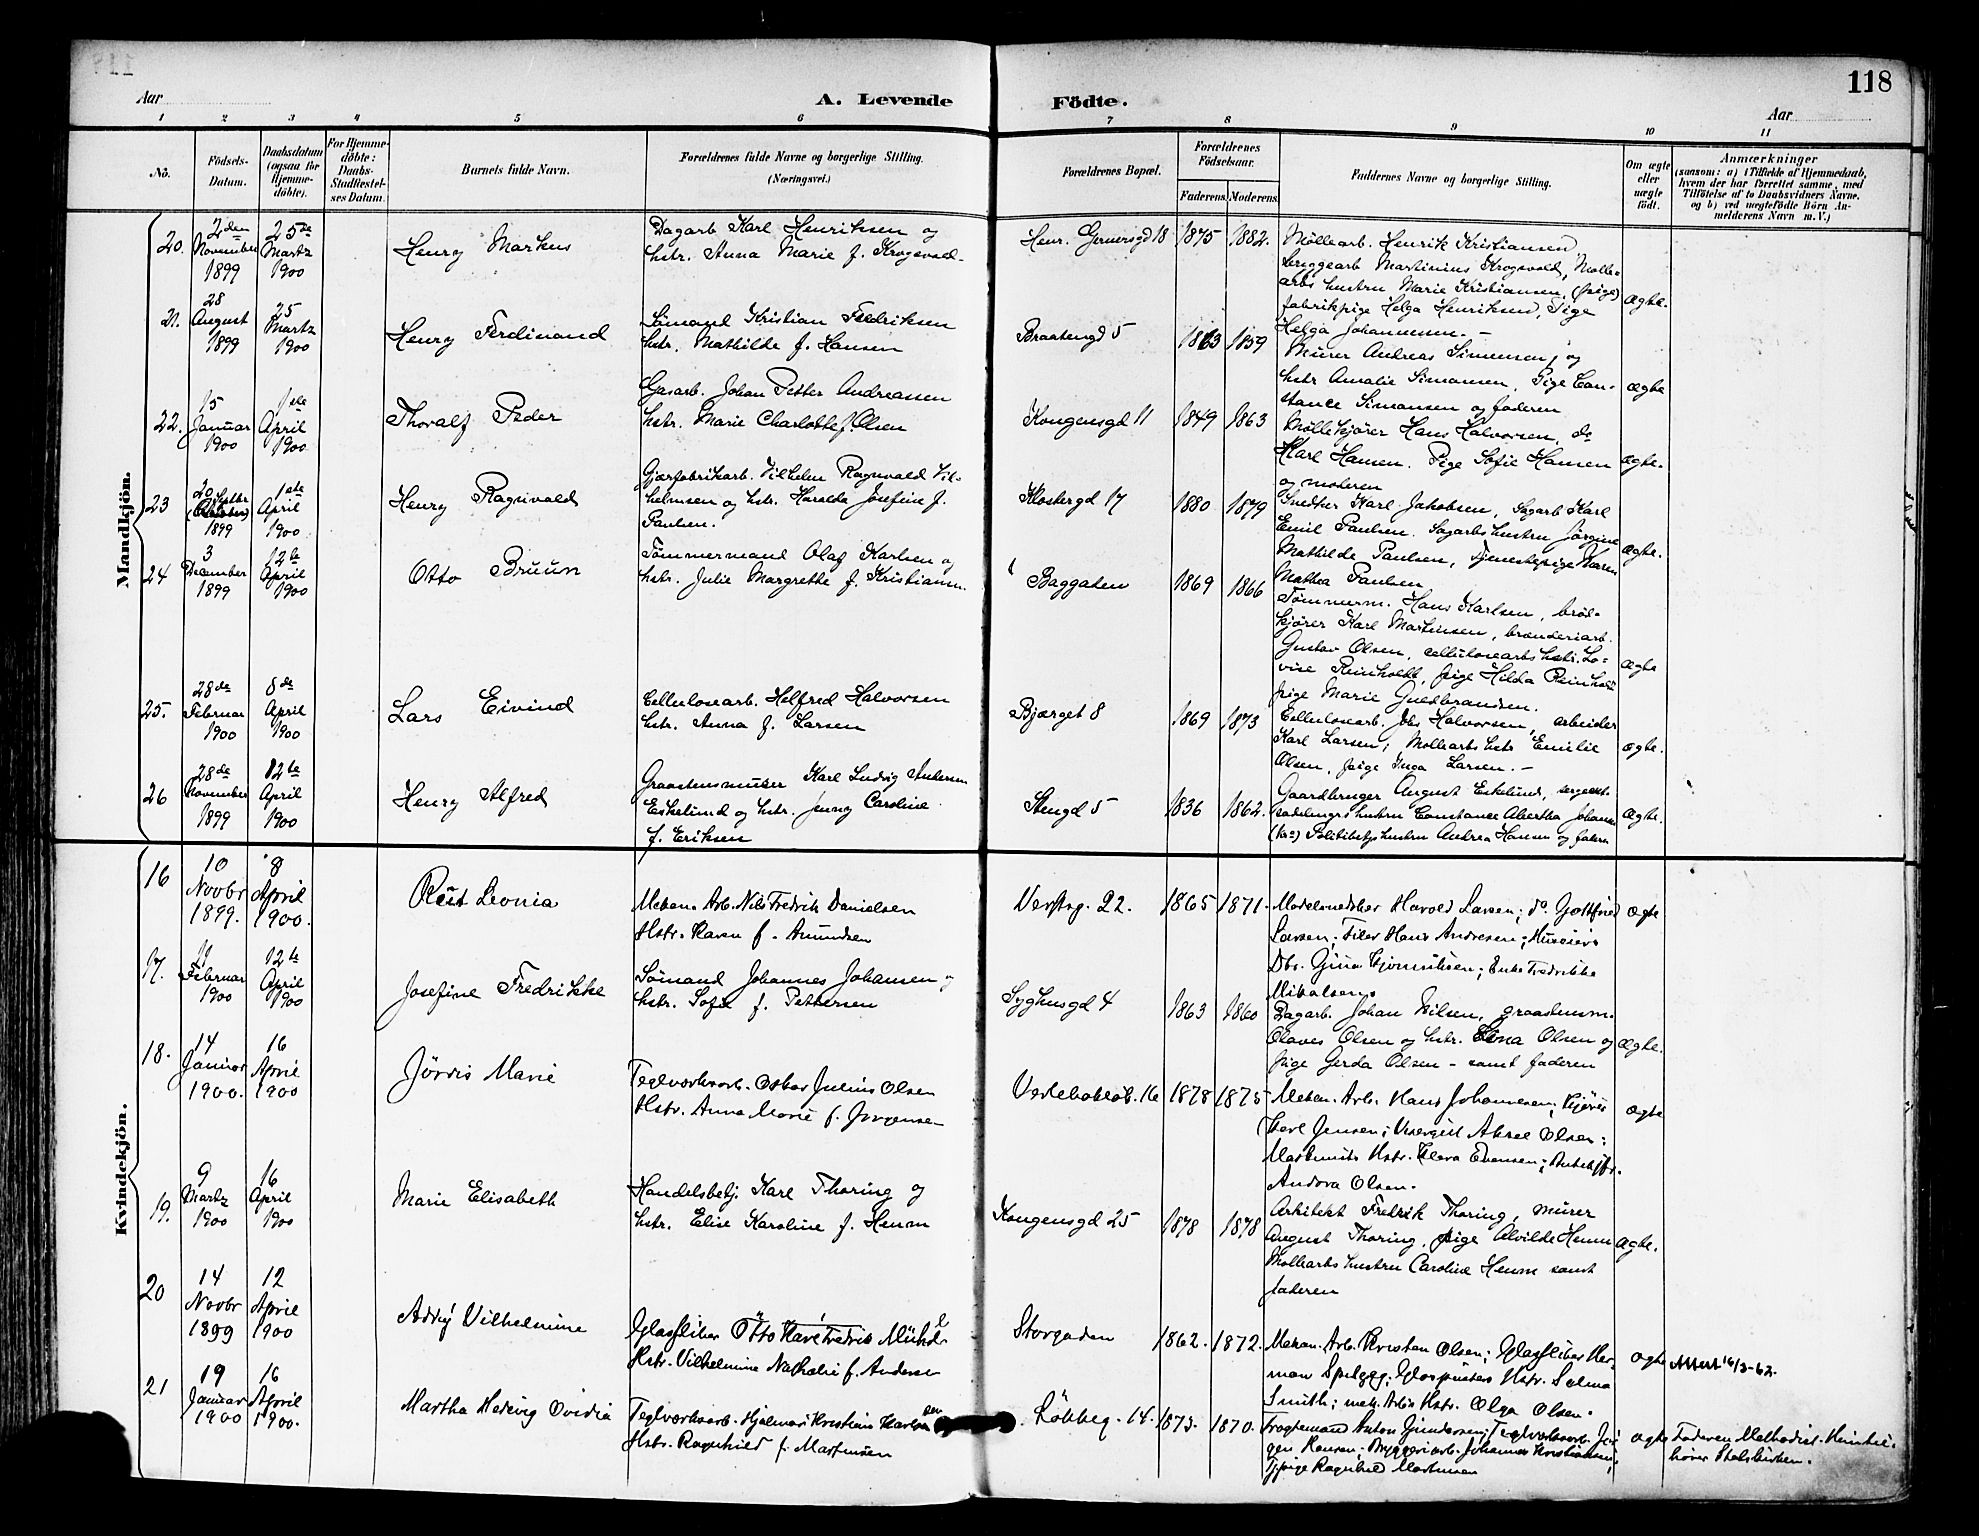 118
Aar
A. Levende Födte.
Aar
1 2 3 4 5 6 7 8 9 10 11
No.
Födsels-Datum.
Daabsdatum (ogsaa for Hjemmedøbte).
For Hjemmedøbte: Daabs-Stadfæstelses Datum.
Barnets fulde Navn.
Forældrenes fulde Navne og borgerlige Stilling.
(Næringsvei.)
Forældrenes Bopæl.
Forældrenes Födselsaar.
Faderens. Moderens.
Faddernes Navne og borgerlige Stilling.
Om ægte eller uægte födt.
Anmærkninger
(saasom: a) i Tilfælde af Hjemmedaab, hvem der har forrettet samme, med Tilföielse af to Daabsvidners Navne, og b) ved uægtefödte Börn Anmelderens Navn m. V.)
Mandkjön.
20.
2den November 1899
25de Martz 1900
Henry Markus
Dagarb. Karl Henriksen og
hstr. Anna Marie f. Krogsvold
Henr. Gernersgd 18
1875 1882.
Møllearb. Henrik Kristiansen,
bryggearb Martinius Krogsvold, Mølle-
arbs hustru Marie Kristiansen, (pige)
fabrikpige Helga Henriksen, Pige
Helga Johannesen. -
ægte.
21.
28 August 1899
25 Martz 1900
Henry Ferdinand
Sømand Kristian Fredriksen
hstr. Mathilde f. Hansen
Braatengd 5
1863 1859
Murer Andreas Simensen, og
hstr Amalie Simensen, Pige Con-
stance Simensen og faderen
ægte
22.
15 Januar 1900
1ste April 1900
Thoralf Peder
Gasarb. Johan Petter Andreassen
hstr. Marie Charlotte f. Olsen
Kongensgd 11
1849 1863
Møllekjører Hans Halvorsen, do
Karl Hansen. Pige Sofie Hansen
og moderen
ægte.
23
20 Septbr 1899
1ste April 1900
Henry Ragnvald
Gjærfabrikarb. Vilhelm Ragnvald Vil-
helmsen og hstr. Haralda Josefine f.
Paulsen.
Klostergd 17
1880 1879
Snedker Karl Jakobsen, Sagarb Karl
Emil Paulsen. Sagarbs hustru Jørgine
Mathilde Paulsen, tjenestepige Karen
Mathea Paulsen
ægte.
24
3 December 1899
12te April 1900
Otto Bruun
Tømmermand Olaf Karlsen og
hstr. Julie Margrethe f. Kristians.
Baggaten
1869 1866
Tømmerm. Hans Karlsen, brød-
kjører Karl Martinsen, brænderiarb.
Gustav Olsen, cellulosearbs hstr. Lo-
vise Reinholdt, pige Hilda Reinholdt
pige Marie Guldbrandsen.
ægte
25.
28de Februar 1900
8de April 1900
Lars Eivind
Cellulosearb. Helfred Halvorsen
hstr. Anna f. Larsen
Bjærget 8
1869 1873
Cellulosearb. Johs Halvorsen, arbeider
Karl Larsen; Møllearbs hstr Emilie
Olsen, pige Inga Larsen. -
ægte.
26
28de November 1899
12te April 1900
Henry Alfred
Graastensmurer Karl Ludvig Andersen
Eskelund og hstr. Jenny Caroline
f. Eriksen
Stengd 5
1836 1862.
Gaardbruger August Eskelund, sergeant
Constance Albertha
Politibetjs hustru Andrea Hansen og faderen
ægte.
Kvindekjön.
16
10 Novbr 1899.
8 April 1900.
Rut Leonia
Mekan. Arb. Nils Fredrik Danielsen
Hstr. Karen f. Amundsen
Verftsg. 22.
1865 1871.
Modelsnedker Harold Larsen; do. Gottfried
Larsen; Filer Hans Andresen; Huseiers
Dtr. Gina Enke Fredrikke
Mikalsen.
ægte
17.
11 Februar 1900
12te April 1900
Josefine Fredrikke
Sømand Johannes Johansen og
hstr. Sofie f. Pettersen
Syghusgd 4
1863 1860
Dagarb. Johan Nilsen, graastensm.
Olaves Olsen og hstr. Olsen og
pige Gerda Olsen - samt faderen
ægte.
18.
14 Januar 1900.
16 April 1900
Jördis Marie
Teglværksarb. Oskar Julius Olsen
Hstr. Anna Marie f. Jørgensen
16
1878 1875
Mekan. Arb. Hans Johannesen; Kjører
Karl Jensen; Aksel Olsen;
Hstr. Klara Evensen;
Andora Olsen.
ægte
19.
9 Martz 1900
16 April 1900
Marie Elisabeth
Handelsbetj. Karl Thoring og
hstr. Elise Karoline f. Henm
Kongensgd 25
1878 1878
Arkitekt Fredrik Thoring, murer
August Thoring, pige Alvilde Henm
Møllearbs hustru Caroline Henm samt
faderen
ægte.
20
14 Novbr 1899
12 April 1900
Addy Vilhelmine
Glassliber Otto Kare Fredrik
Hstr. Vilhelmine Nathalie f. Anderse
Storgaden
1862. 1872.
Mekan. Arb. Kristen Olsen; Glassliber Her-
man Glaspusters Hstr. Selma
Smith; mek. Arbs Hstr. Olga Olsen.
ægte
Attest 16/3-62.
21
19 Januar 1900
16 April 1900.
Martha Hedevig Ovidia
Teglværksarb. Hjalmar Kristian Karlsen
Hstr. Ragnhild f. Martinsen
Løkkeg. 14.
1873. 1870.
Anton Gundersen; Teglværksarb. Jør-
gen Hansen; Bryggeriarb. Johannes Kristiansen;
Tjpige Ragnhild Martinsen
ægte
Faderen Methodist. Hun til-
hører Statskirken.